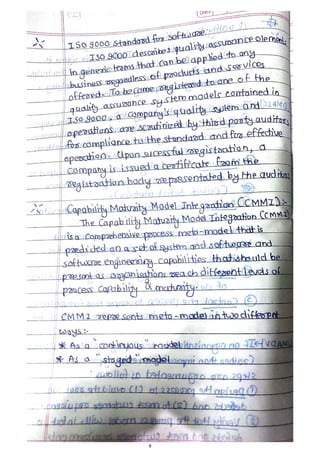 ISO 9000 standard for software
ISO 9000 describes quality assurance elements
In generic trams that can be applied to any
business regardless of products and services
offered. To become registered to one of the
quality assurance system models contained in
ISO 9000, a company's quality system and
operations are scrutinized by third party auditors
for compliance to the standard and for effective
operation. Upon sucessful registration, a
company is issued a certificate from the
registration body represontated by the auditors
Capability Maturity Model Integration (CMMI):-
The Capability Maturity Model Integration (CMMI)
is a comprehensive process meta-model that is
predicted on a set of system and software and
software engineering capabilities that should be
present as organisations reach different levels of
process capability & maturity.
CMMI represents meta-model in two different
ways:-
* As a "continuous" model
* As a "staged" model
6